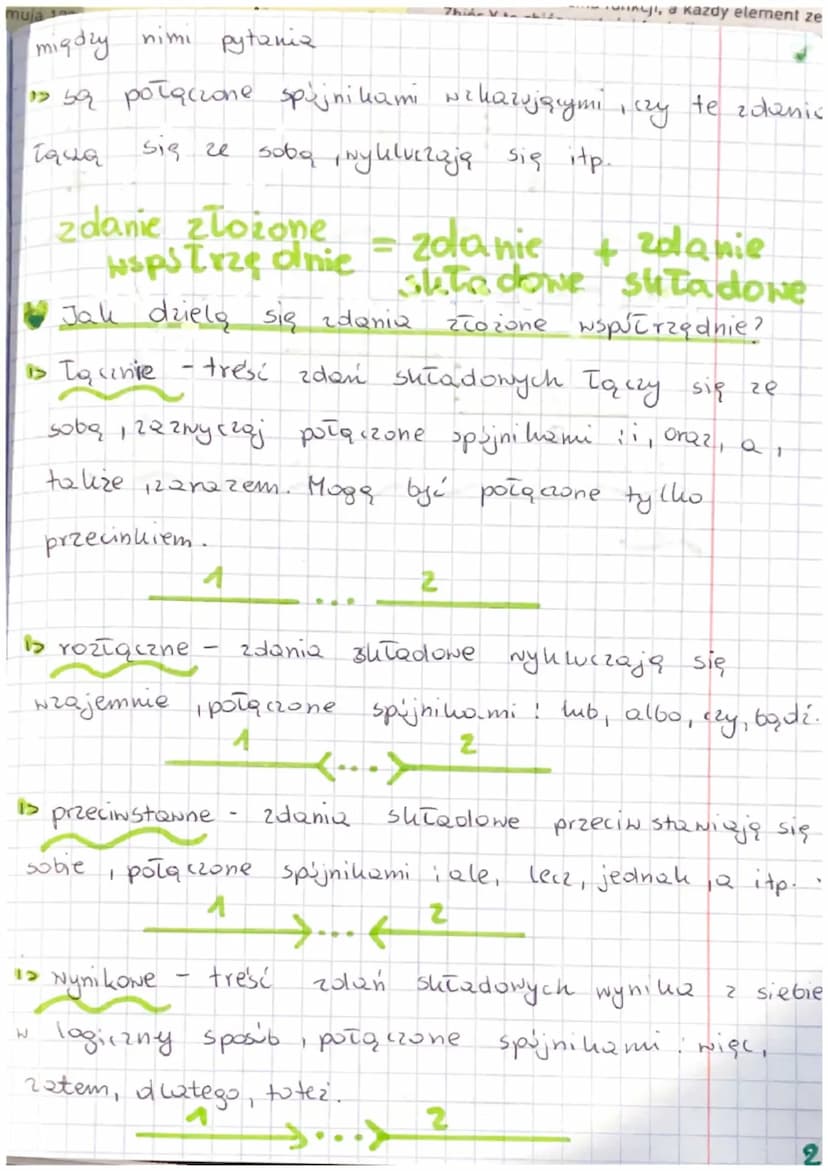 funkcji, a każdy element ze
między nimi pytania
są połączone spójnikami wskazującymi, czy te zdania
łączą się ze sobą, wykluczają się itp.
zdanie złożone współrzędnie = zdanie składowe + zdanie składowe
Jak dzielą się zdania złożone współrzędnie?
łącznie - treść zdań składowych łączy się ze
sobą, zazwyczaj połączone spójnikami: i, oraz, a,
także, zarazem. Mogą być połączone tylko
przecinkiem.
1 ... 2
rozłączne - zdania składowe wykluczają się
wzajemnie, połączone spójnikami: lub, albo, czy, bądź.
1 <...> 2
przeciwstawne - zdania składowe przeciwstawiają się
sobie, połączone spójnikami: ale, lecz, jednak, a itp.
1 >...< 2
wynikowe - treść zdań składowych wynika z siebie
w logiczny sposób, połączone spójnikami: więc,
zatem, dlatego, toteż.
1 >...> 2
2